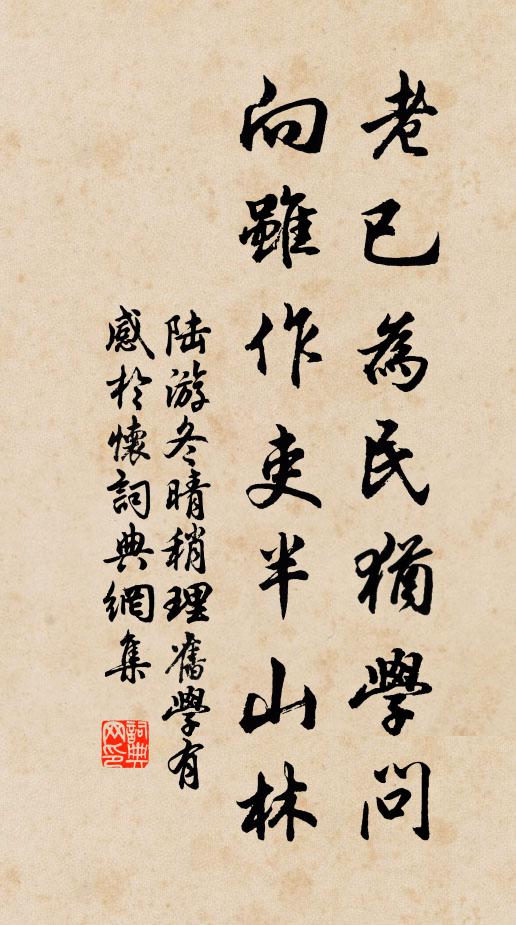 老已為民猶學問
向雖作吏半山林
陆游冬晴稍理舊學有
感於懷詞典網集
詞典网印